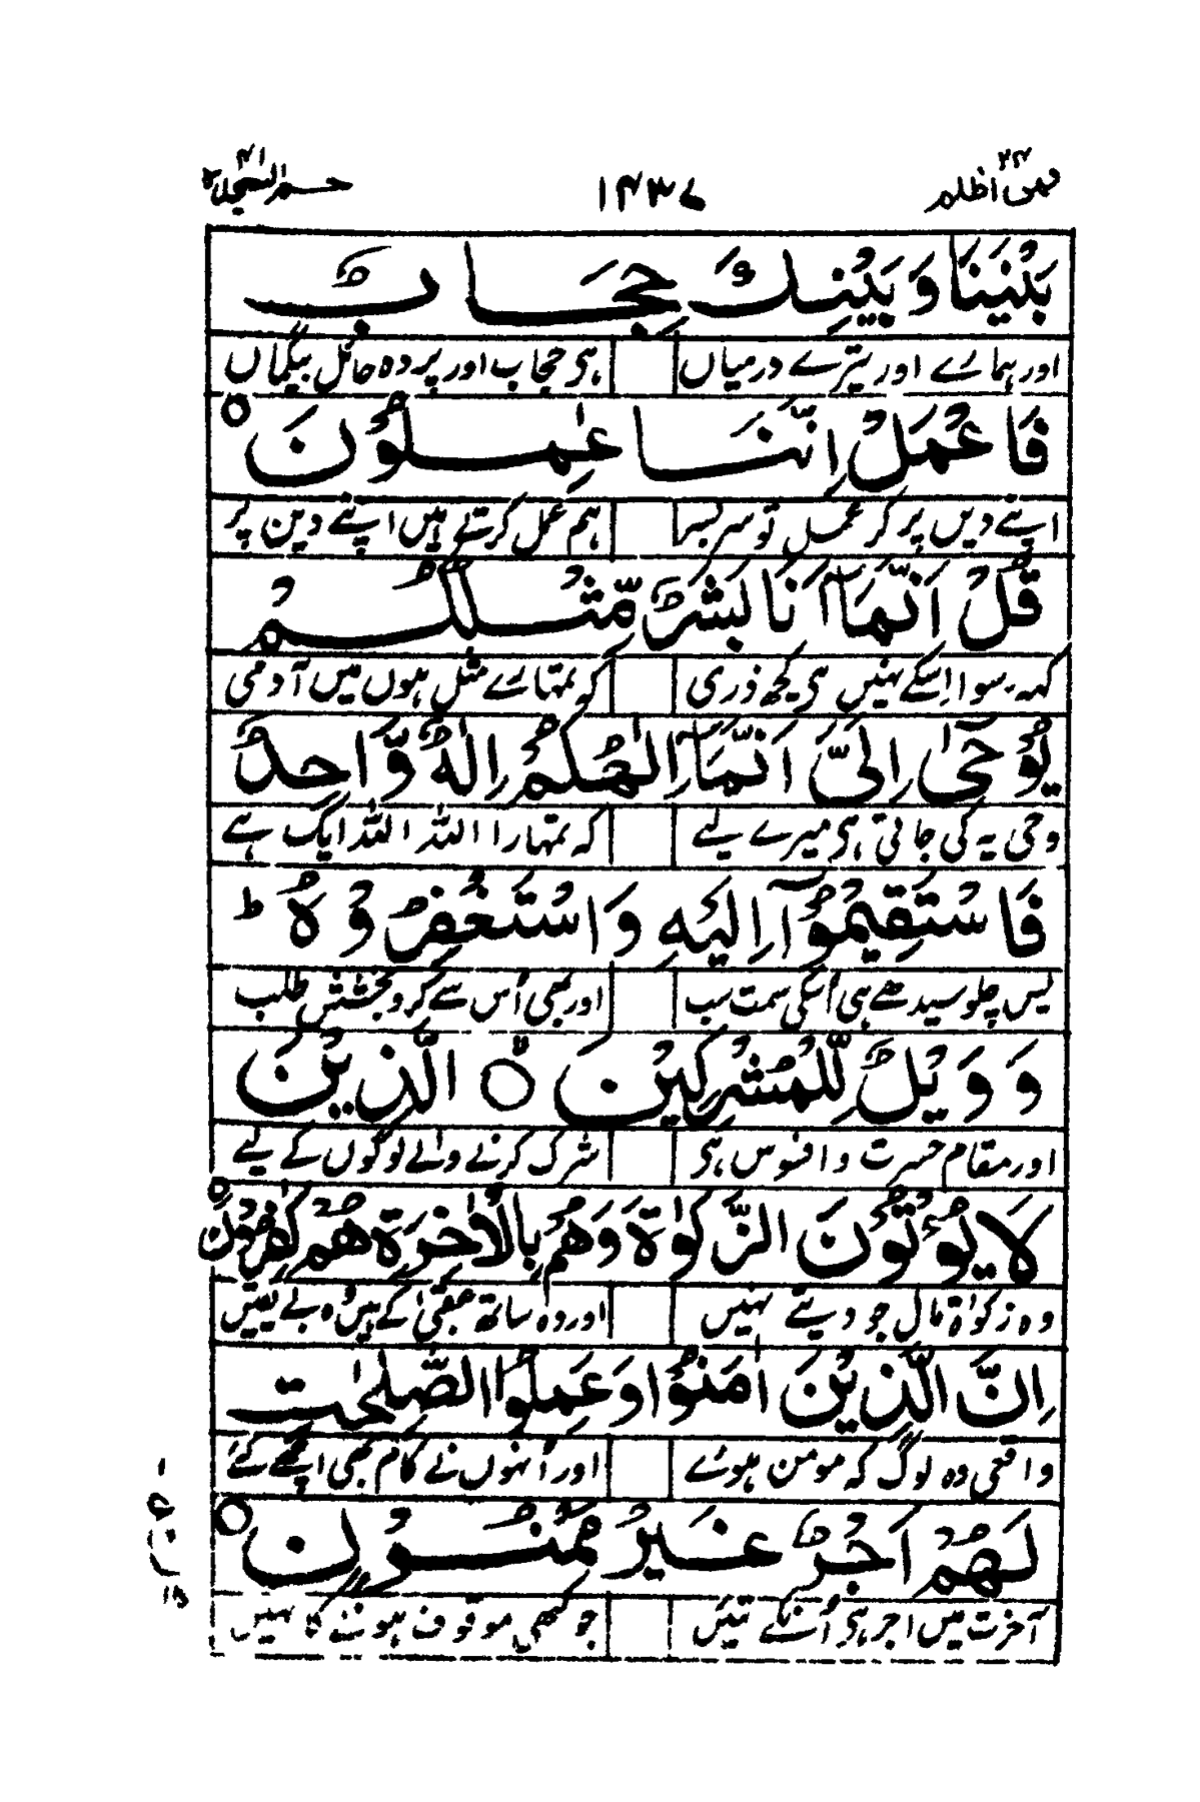 فمن اظلم ۲۴
۱۴۳۷
حم السجدة ۴۱
بَيْنِنَا وَبَيْنِكَ حِجَابٌ
اور ہمارے اور تیرے درمیاں ہی حجاب اور پردہ حائل بیگماں
فَاعْمَلْ اِنَّنَا عٰمِلُوْنَ ○
اپنے دیں پر کر عمل تو سربسر ہم عمل کرتے ہیں اپنے دین پر
قُلْ اِنَّمَاۤ اَنَا بَشَرٌ مِّثْلُكُمْ
کہہ سوا اسکے نہیں ہی کچھ ذری کہ تمہارے مثل ہوں میں آدمی
يُوْحٰۤى اِلَىَّ اَنَّمَاۤ اِلٰهُكُمْ اِلٰهٌ وَّاحِدٌ
وحی یہ کی جاتی ہی میرے لیے کہ تمہارا اللہ اللہ ایک ہے
فَاسْتَقِيْمُوْۤا اِلَيْهِ وَاسْتَغْفِرُوْهُ ؕ
پس چلو سیدھے ہی اُسکی سمت سب اور بھی اُس سے کرو بخشش طلب
وَوَيْلٌ لِّلْمُشْرِكِيْنَ ○ الَّذِيْنَ
اور مقام حسرت و افسوس ہی شرک کرنے والے لوگوں کے لیے
لَا يُؤْتُوْنَ الزَّكٰوةَ وَهُمْ بِالْاٰخِرَةِ هُمْ كٰفِرُوْنَ ○
وہ زکوٰۃ مال جو دیتے نہیں اور وہ ساتھ عقبیٰ کے ہیں وہ بے یقیں
اِنَّ الَّذِيْنَ اٰمَنُوْا وَعَمِلُوا الصّٰلِحٰتِ
واقعی وہ لوگ کہ مومن ہوئے اور اُنہوں نے کام بھی اچھے کئے
لَهُمْ اَجْرٌ غَيْرُ مَمْنُوْنٍ ○
آخرت میں اجر ہی اُنکے تئیں جو کبھی موقوف ہونے کا نہیں